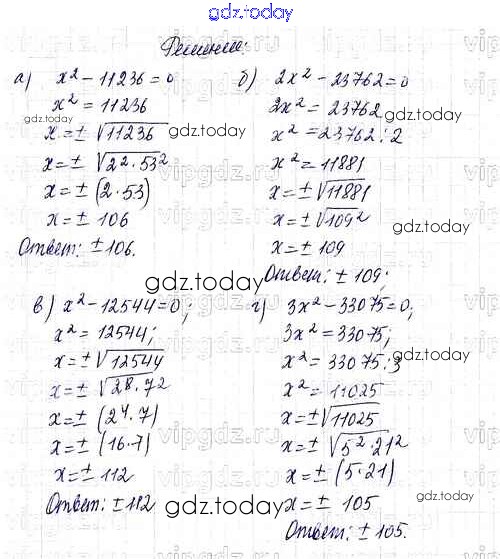 gdz.today
Решение:
а) x² - 11236 = 0
x² = 11236
x = ± √11236
x = ± √2²·53²
x = ± (2·53)
x = ± 106
Ответ: ± 106.
б) 2x² - 23762 = 0
2x² = 23762
x² = 23762 : 2
x² = 11881
x = ± √11881
x = ± √109²
x = ± 109
Ответ: ± 109;
в) x² - 12544 = 0;
x² = 12544;
x = ± √12544
x = ± √2⁸·7²
x = ± (2⁴·7)
x = ± (16·7)
x = ± 112
Ответ: ± 112
г) 3x² - 33075 = 0;
3x² = 33075;
x² = 33075 : 3
x² = 11025
x = ± √11025
x = ± √5²·21²
x = ± (5·21)
x = ± 105
Ответ: ± 105.
gdz.today
gdz.today
gdz.today
gdz.today
gdz.today
gdz.today
gdz.today
gdz.today
vipgdz.ru
vipgdz.ru
vipgdz.ru
vipgdz.ru